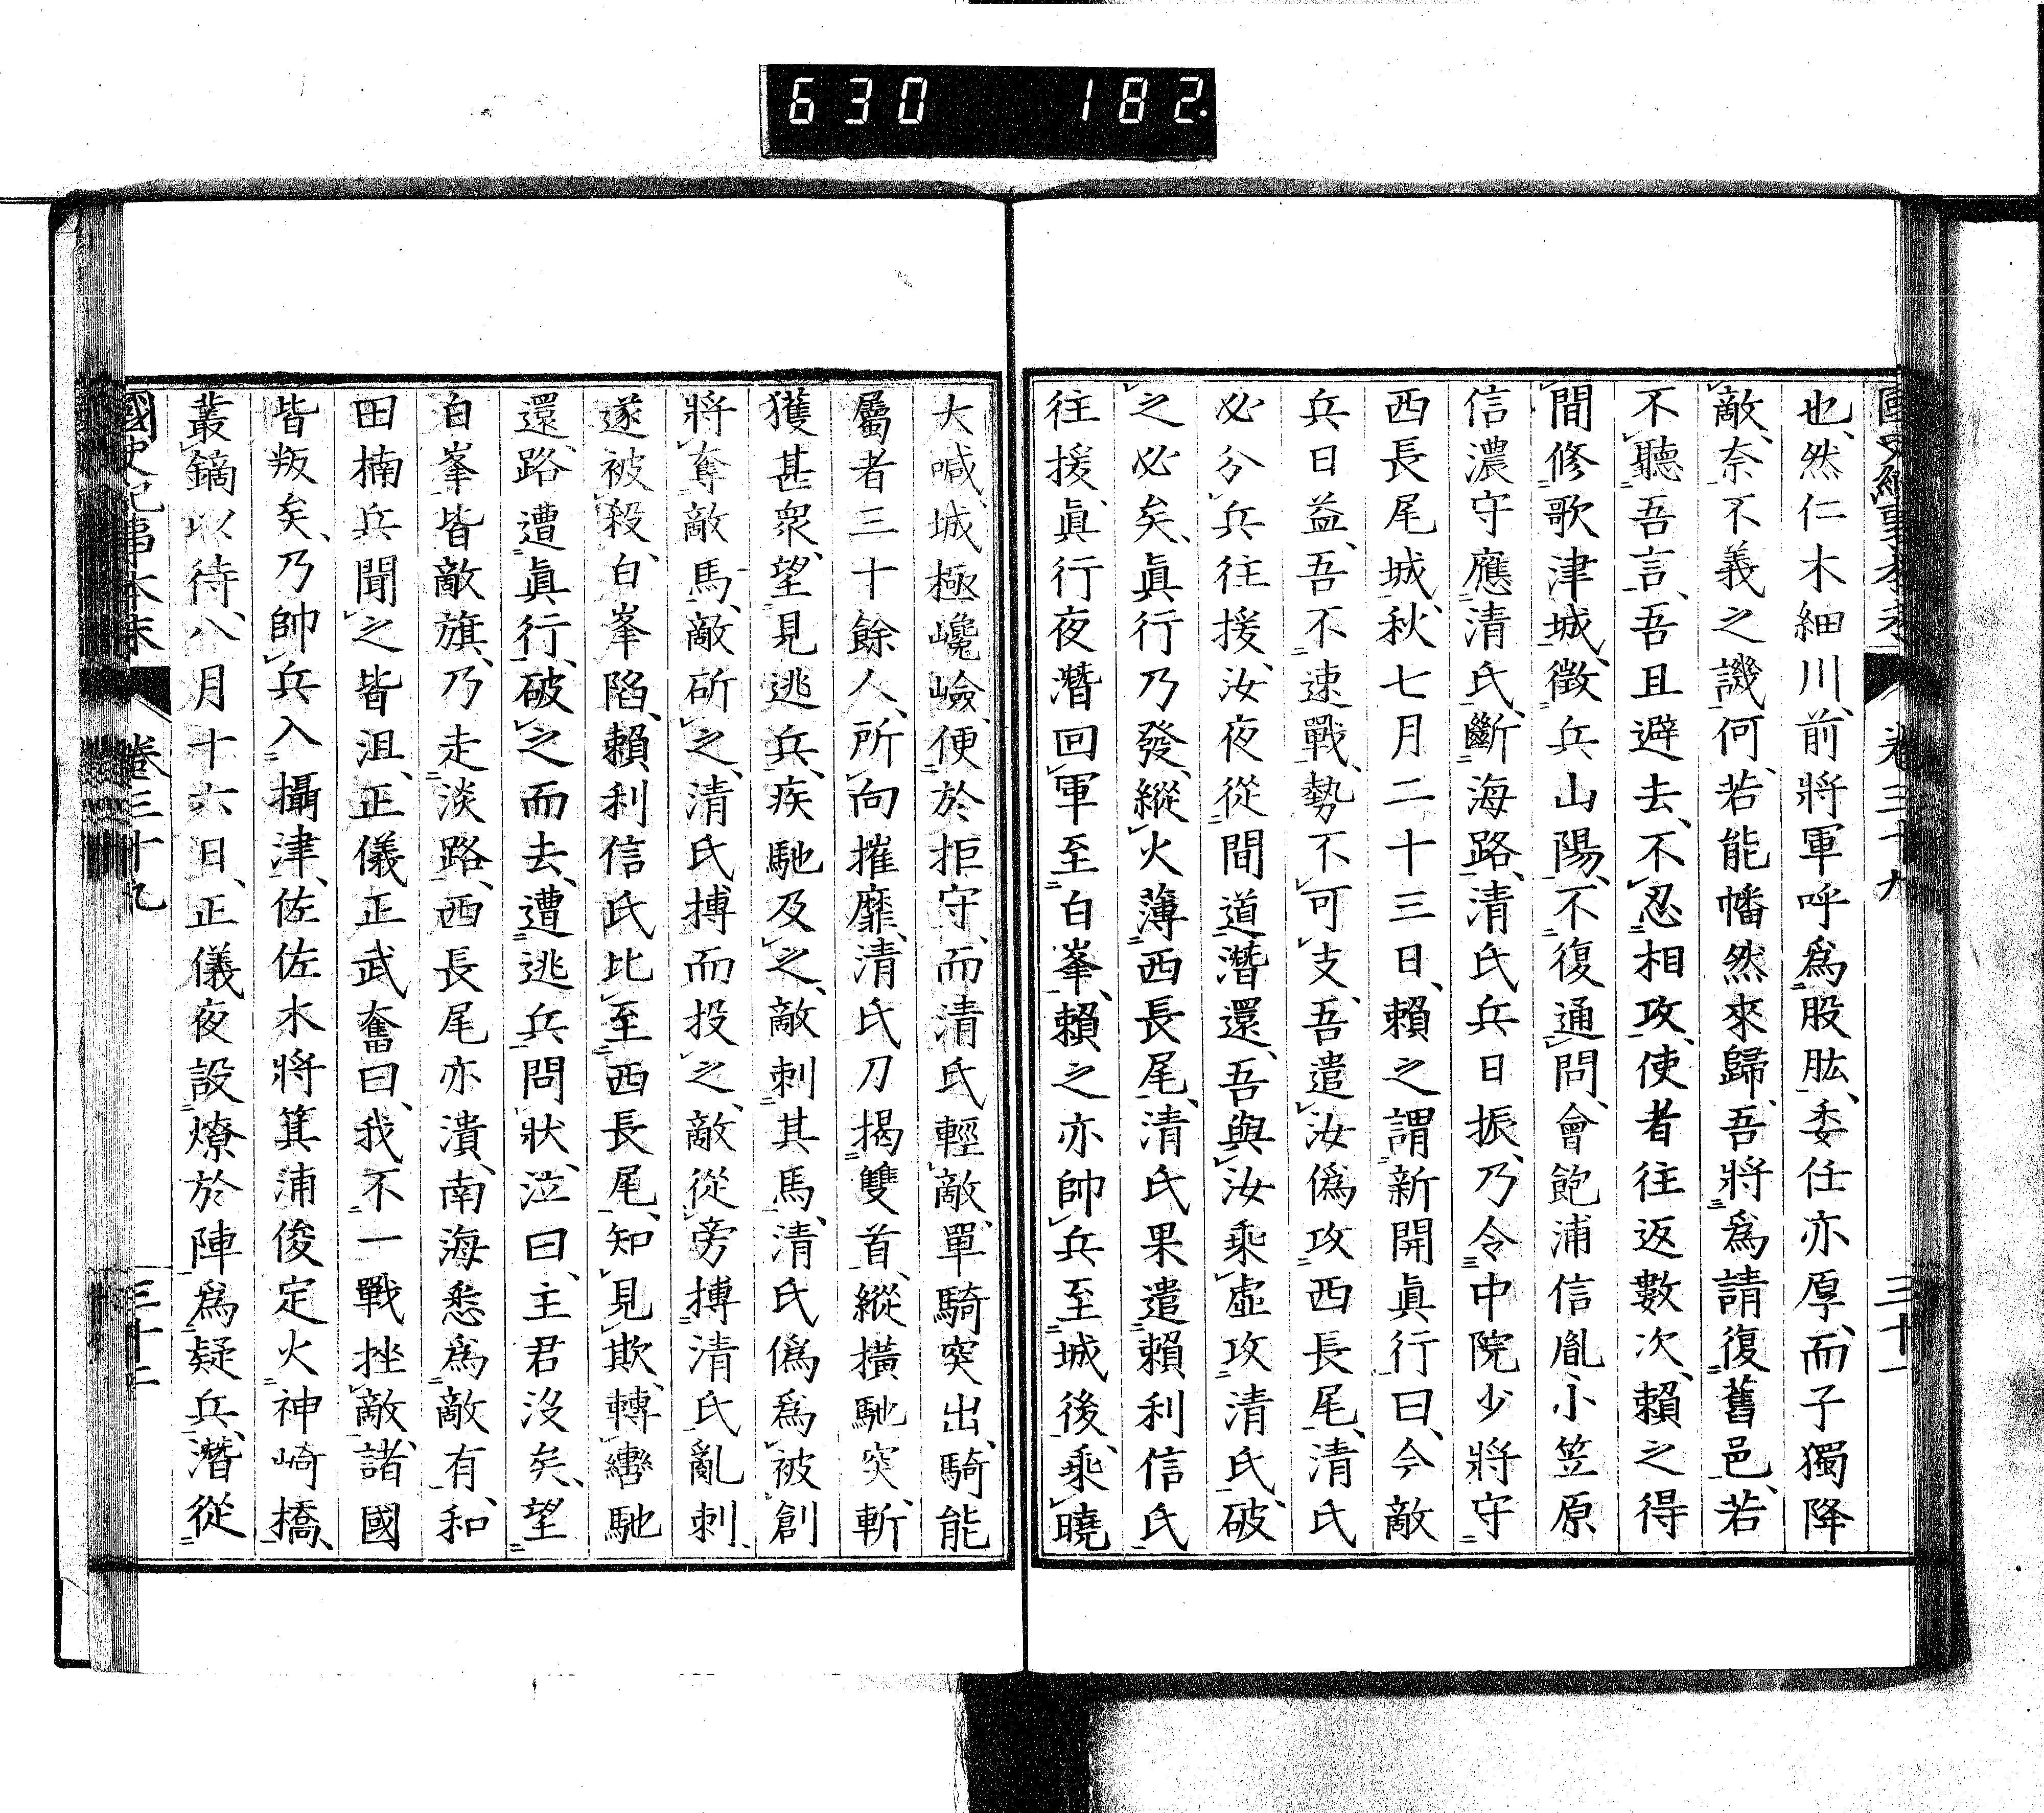 630 182
國史紀事本末 卷三十九 三十一
也、然仁木細川、前將軍呼爲股肱、委任亦厚、而子獨降
敵、奈不義之譏何、若能幡然來歸、吾將爲請復舊邑、若
不聽吾言、吾且避去、不忍相攻、使者往返數次、賴之得
間修歌津城、徵兵山陽、不復通問、會飽浦信胤小笠原
信濃守應清氏、斷海路、清氏兵日振、乃令中院少將守
西長尾城、秋七月二十三日、賴之謂新開眞行曰、今敵
兵日益、吾不速戰、勢不可支、吾遣汝僞攻西長尾、清氏
必分兵往援、汝夜從間道潛還、吾與汝乘虛攻清氏、破
之必矣、眞行乃發、縱火薄西長尾、清氏果遣賴利信氏
往援、眞行夜潛回軍至白峯、賴之亦帥兵至城後、乘曉
大喊、城極巉嶮、便於拒守、而清氏輕敵、單騎突出、騎能
屬者三十餘人、所向摧靡、清氏刀揭雙首、縱橫馳突、斬
獲甚衆、望見逃兵、疾馳及之、敵刺其馬、清氏僞爲被創
將奪敵馬、敵斫之、清氏搏而投之、敵從旁搏清氏亂刺、
遂被殺、白峯陷、賴利信氏比至西長尾、知見欺、轉轡馳
還、路遭眞行、破之而去、遭逃兵問狀、泣曰、主君沒矣、望
白峯、皆敵旗、乃走淡路、西長尾亦潰、南海悉爲敵有、和
田楠兵聞之皆沮、正儀正武奮曰、我不一戰挫敵、諸國
皆叛矣、乃帥兵入攝津、佐佐木將箕浦俊定火神崎橋、
叢鏑以待、八月十六日、正儀夜設燎於陣、爲疑兵、潛從
國史紀事本末 卷三十九 三十二